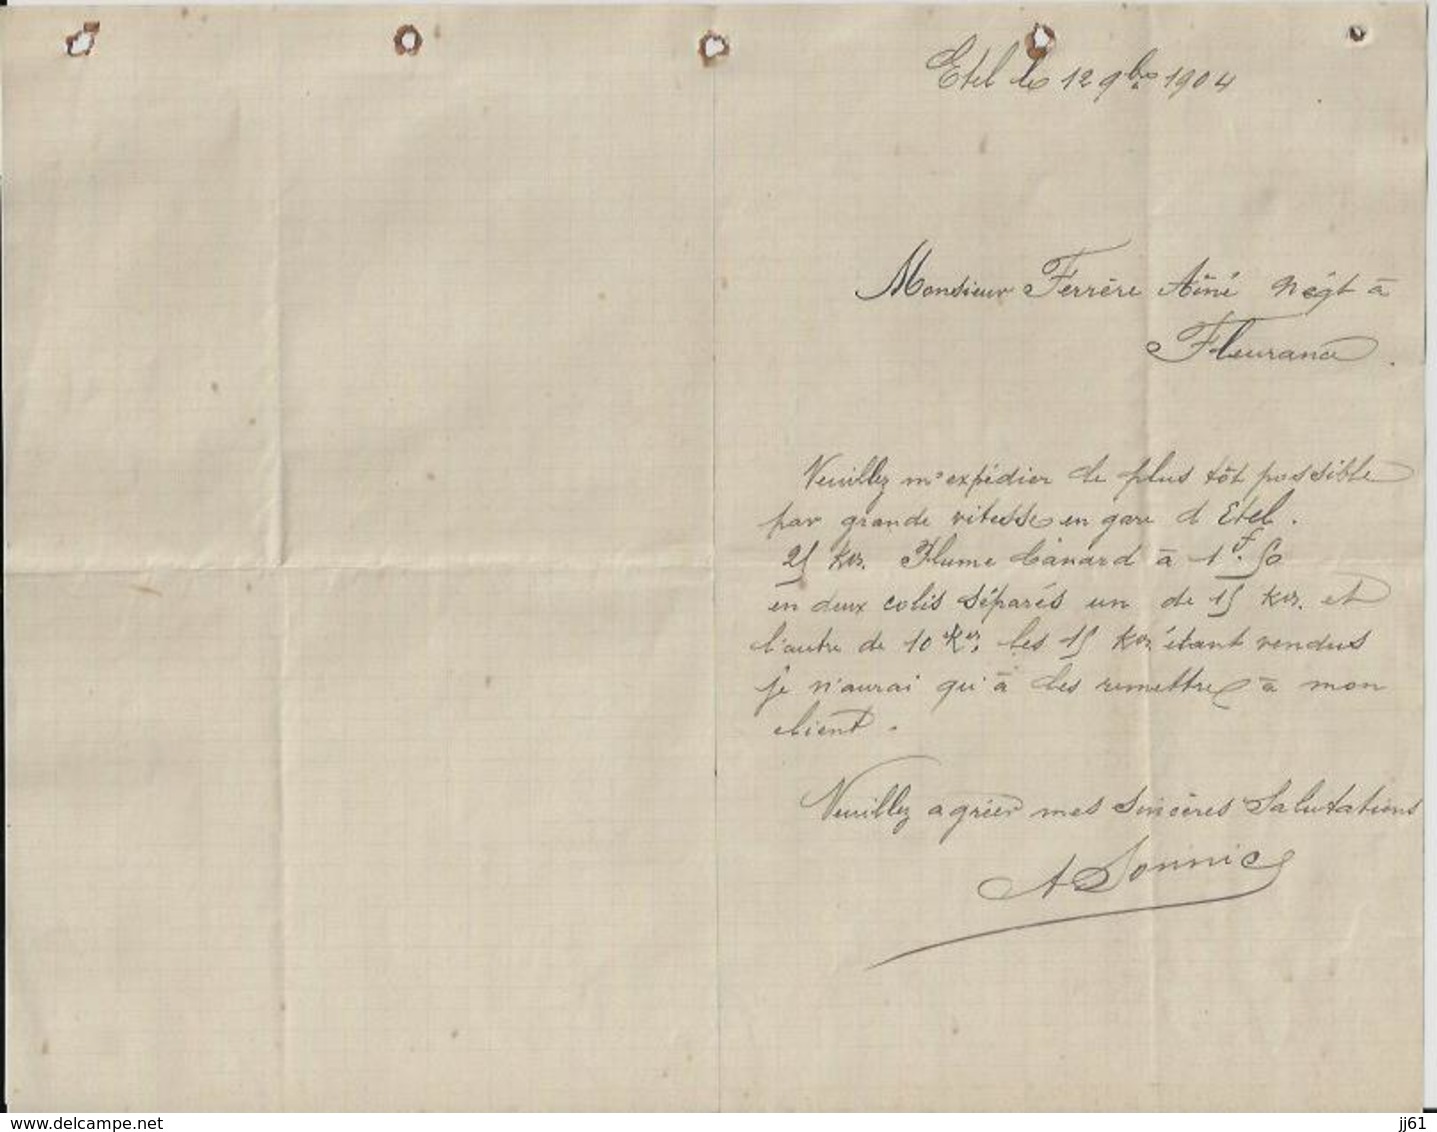 Etel le 12 9bre 1904
Monsieur Ferrère Aîné Négt à
Fleurance.
Veuillez m'expédier le plus tôt possible
par grande vitesse en gare d'Etel.
25 kos. Plume Canard à 1f.50
en deux colis séparés un de 15 kos. et
l'autre de 10 kos. Les 15 kos étant vendus
je n'aurai qu'à les remettre à mon
client.
Veuillez agréer mes sincères Salutations
A Sonnic
www.delcampe.net
jj61